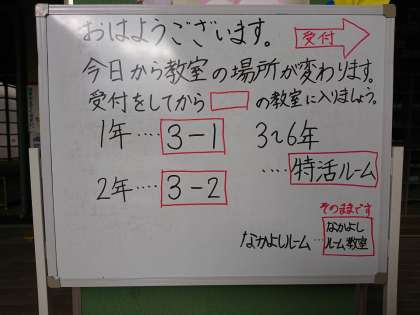 おはようございます。
受付
今日から教室の場所が変わります。
受付をしてから の教室に入りましょう。
1年‥‥3-1
3~6年
‥‥特活ルーム
2年‥‥3-2
そのままです
なかよしルーム…なかよし
ルーム教室